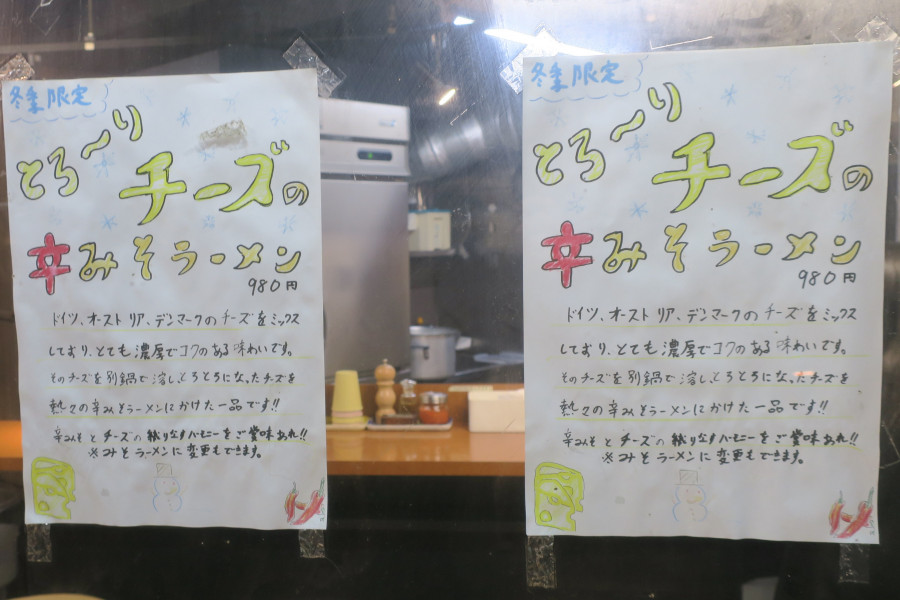 冬季限定
とろ〜り
チーズの
辛みそラーメン
980円
ドイツ、オーストリア、デンマークのチーズをミックス
しており、とても濃厚でコクのある味わいです。
そのチーズを別鍋で溶し、とろとろになったチーズを
熱々の辛みそラーメンにかけた一品です!!
辛みそとチーズの織りなすハーモニーをご賞味あれ!!
※みそラーメンに変更もできます。
冬季限定
とろ〜り
チーズの
辛みそラーメン
980円
ドイツ、オーストリア、デンマークのチーズをミックス
しており、とても濃厚でコクのある味わいです。
そのチーズを別鍋で溶し、とろとろになったチーズを
熱々の辛みそラーメンにかけた一品です!!
辛みそとチーズの織りなすハーモニーをご賞味あれ!!
※みそラーメンに変更もできます。